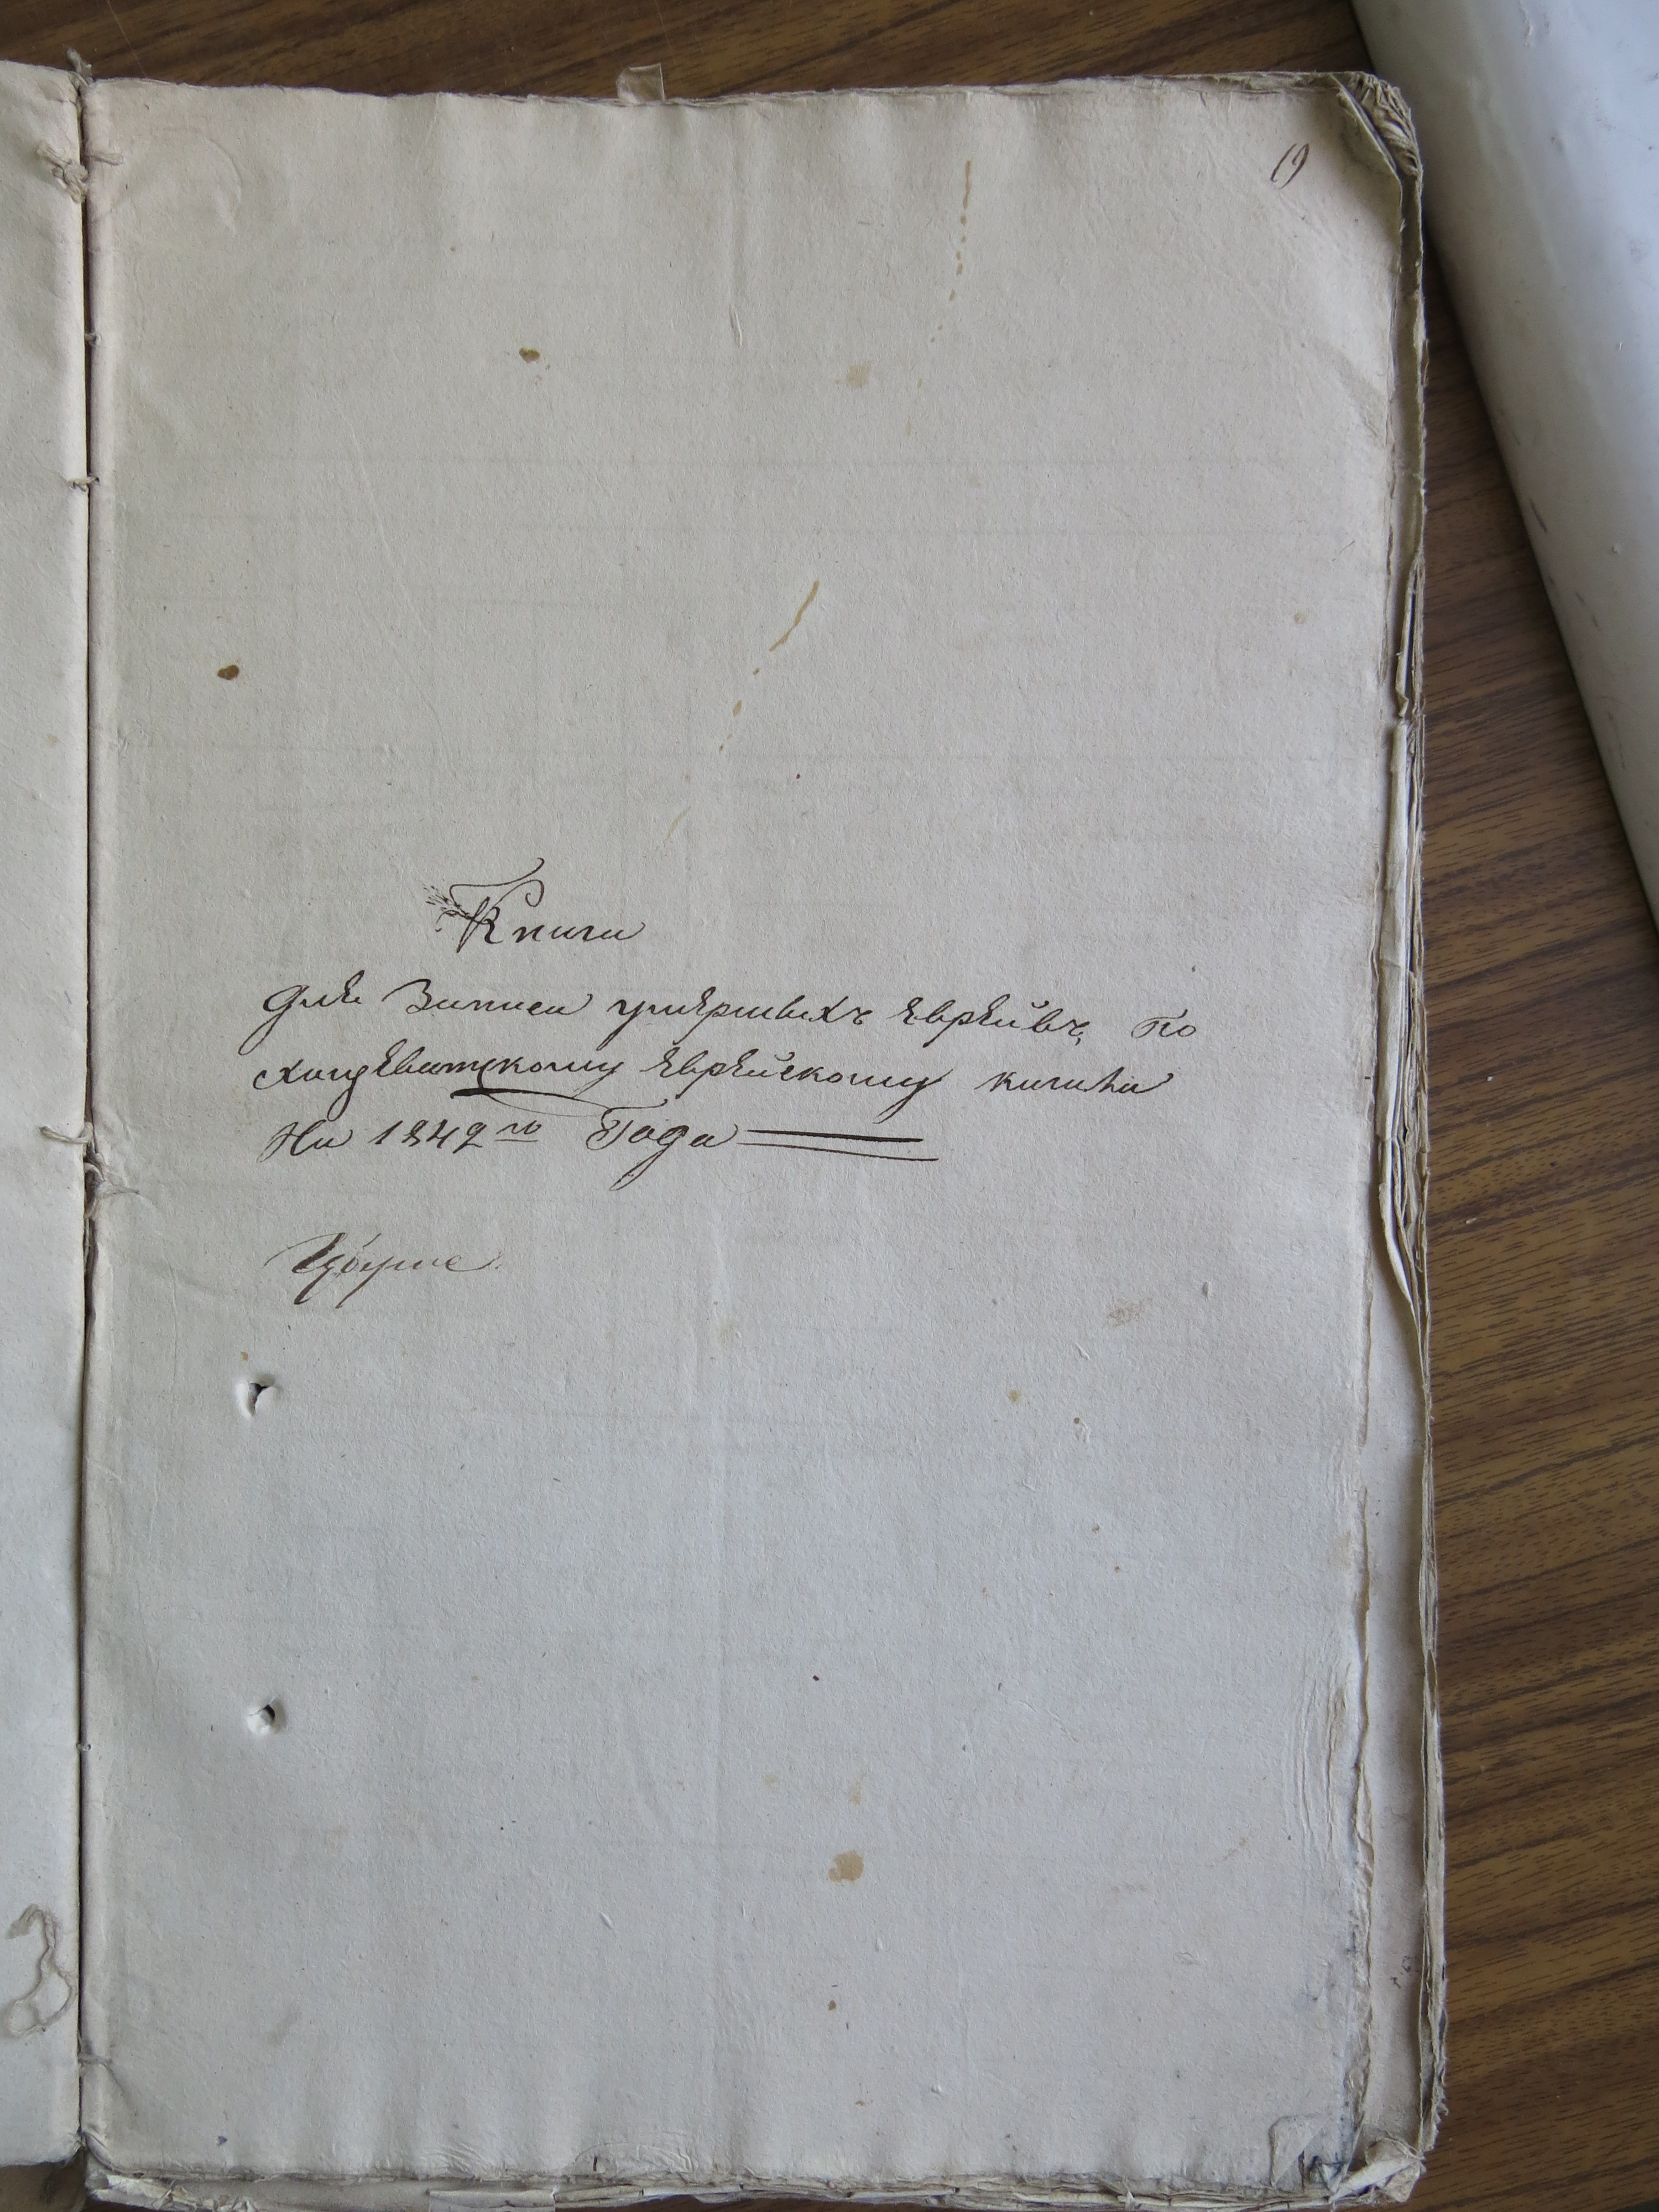 Книга
для Записи умершихъ Еврейвъ, По
Хащеватскому Еврейскому кагалу
На 1842 го Года